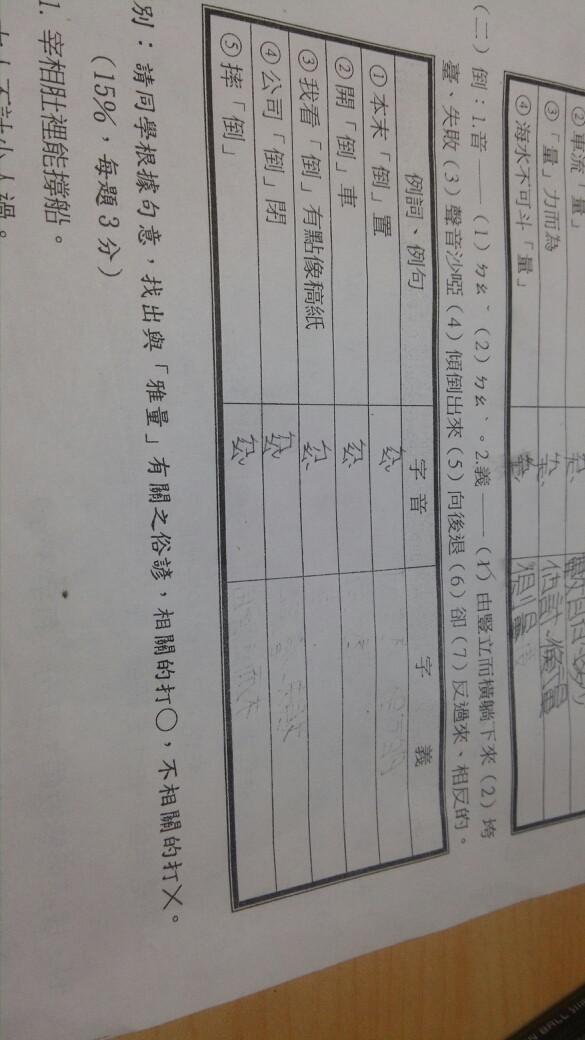 ② 車流「量」
③「量」力而為
④ 海水不可斗「量」
估計、衡量
測量
(二) 倒：1.音——(1) ㄉㄠˇ (2) ㄉㄠˋ。2.義——(1) 由豎立而橫躺下來 (2) 垮
臺、失敗 (3) 聲音沙啞 (4) 傾倒出來 (5) 向後退 (6) 卻 (7) 反過來、相反的。
例詞、例句 字音 字義
① 本末「倒」置 ㄉㄠˋ
② 開「倒」車 ㄉㄠˋ
③ 我看「倒」有點像稿紙 ㄉㄠˋ
④ 公司「倒」閉 ㄉㄠˇ
⑤ 摔「倒」 ㄉㄠˇ
別：請同學根據句意，找出與「雅量」有關之俗諺，相關的打○，不相關的打╳。
(15%，每題 3 分)
1. 宰相肚裡能撐船。